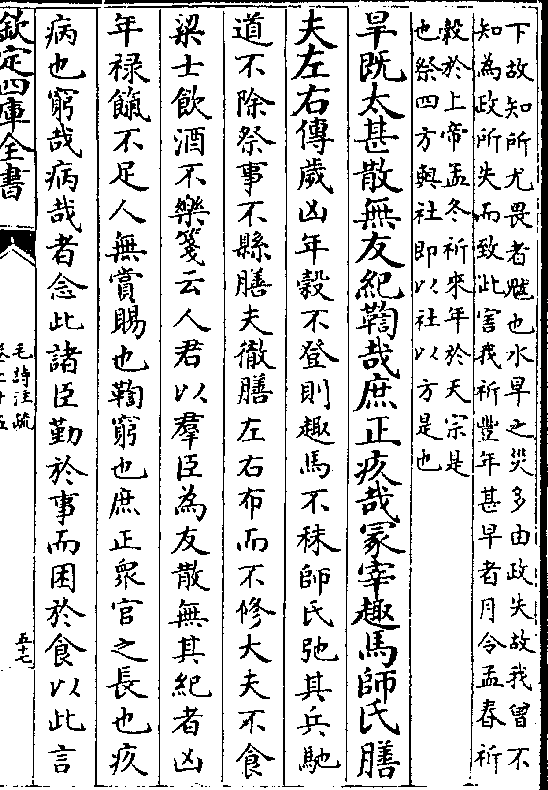 下故知所尤畏者魃也水旱之災多由政失故我曽不
知為政所失而致此害我祈豐年甚早者月令孟春祈
穀於上帝孟冬祈來年於天宗是
也祭四方與社即以社以方是也
旱既太甚散無友紀鞫哉庶正疚哉冢宰趣馬師氏膳
夫左右傳歲凶年穀不登則趣馬不秣師氏弛其兵馳
道不除祭事不縣膳夫徹膳左右布而不修大夫不食
粱士飲酒不樂箋云人君以羣臣為友散無其紀者凶
年禄餼不足人無賞賜也鞫窮也庶正衆官之長也疚
病也窮哉病哉者念此諸臣勤於事而困於食以此言
欽定四庫全書
毛詩注疏
卷二十五
五十七